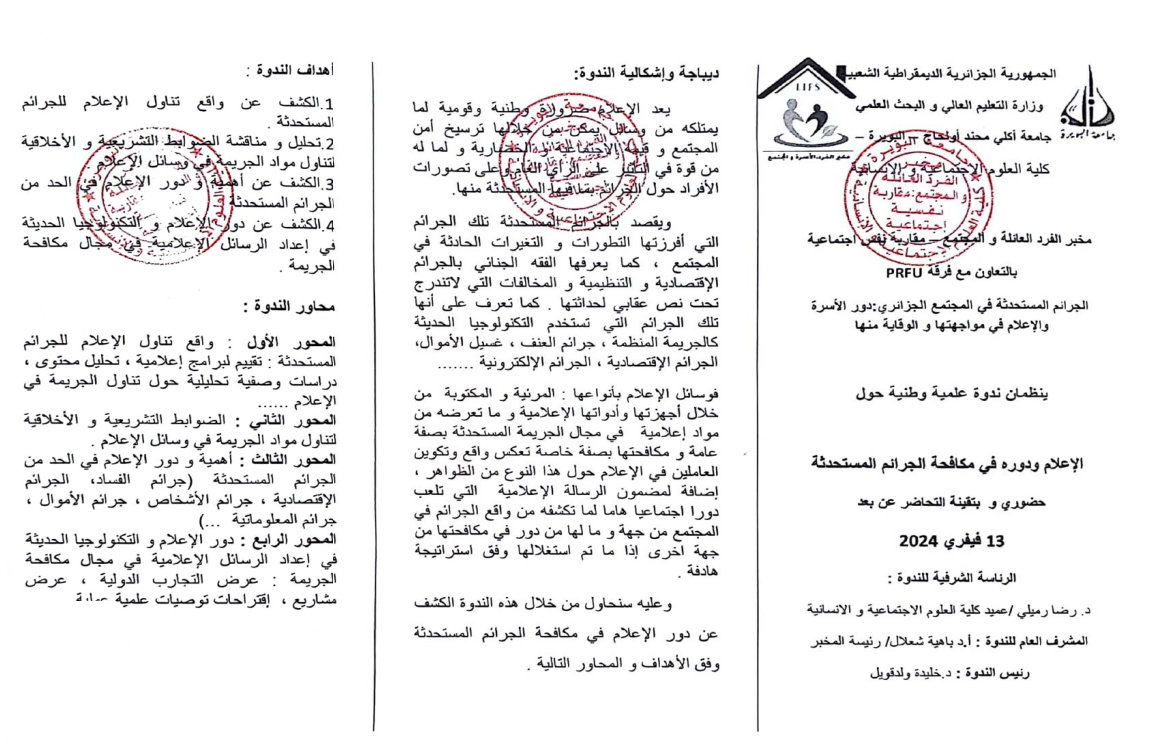 الجمهورية الجزائرية الديمقراطية الشعبية
وزارة التعليم العالي و البحث العلمي
جامعة أكلي محند أولحاج – البويرة –
كلية العلوم الاجتماعية و الانسانية
LIFS
مخبر الفرد والأسرة والمجتمع
جامعة البويرة
مخبر الفرد العائلة و المجتمع – مقاربة نفس اجتماعية
بالتعاون مع فرقة PRFU
الجرائم المستحدثة في المجتمع الجزائري:دور الأسرة
والإعلام في مواجهتها و الوقاية منها
ينظمان ندوة علمية وطنية حول
الإعلام ودوره في مكافحة الجرائم المستحدثة
حضوري و بتقينة التحاضر عن بعد
13 فيفري 2024
الرئاسة الشرفية للندوة :
د. رضا رميلي /عميد كلية العلوم الاجتماعية و الانسانية
المشرف العام للندوة : أ.د باهية شعلال/ رئيسة المخبر
رئيس الندوة : د.خليدة ولدقويل
ديباجة وإشكالية الندوة:
يعد الإعلام ضرورة وطنية وقومية لما
يمتلكه من وسائل يمكن من خلالها ترسيخ أمن
المجتمع و قيمه الاجتماعية و الحضارية و لما له
من قوة في التأثير على الرأي العام وعلى تصورات
الأفراد حول الجرائم بما فيها المستحدثة منها.
ويقصد بالجرائم المستحدثة تلك الجرائم
التي أفرزتها التطورات و التغيرات الحادثة في
المجتمع ، كما يعرفها الفقه الجنائي بالجرائم
الإقتصادية و التنظيمية و المخالفات التي لاتندرج
تحت نص عقابي لحداثتها . كما تعرف على أنها
تلك الجرائم التي تستخدم التكنولوجيا الحديثة
كالجريمة المنظمة ، جرائم العنف ، غسيل الأموال،
الجرائم الإقتصادية ، الجرائم الإلكترونية .......
فوسائل الإعلام بأنواعها : المرئية و المكتوبة من
خلال أجهزتها وأدواتها الإعلامية و ما تعرضه من
مواد إعلامية في مجال الجريمة المستحدثة بصفة
عامة و مكافحتها بصفة خاصة تعكس واقع وتكوين
العاملين في الإعلام حول هذا النوع من الظواهر ،
إضافة لمضمون الرسالة الإعلامية التي تلعب
دورا اجتماعيا هاما لما تكشفه من واقع الجرائم في
المجتمع من جهة و ما لها من دور في مكافحتها من
جهة اخرى إذا ما تم استغلالها وفق استراتيجة
هادفة .
وعليه سنحاول من خلال هذه الندوة الكشف
عن دور الإعلام في مكافحة الجرائم المستحدثة
وفق الأهداف و المحاور التالية .
أهداف الندوة :
1.الكشف عن واقع تناول الإعلام للجرائم
المستحدثة .
2.تحليل و مناقشة الضوابط التشريعية و الأخلاقية
لتناول مواد الجريمة في وسائل الإعلام .
3.الكشف عن أهمية و دور الإعلام في الحد من
الجرائم المستحدثة
4.الكشف عن دور الإعلام و التكنولوجيا الحديثة
في إعداد الرسائل الإعلامية في مجال مكافحة
الجريمة .
محاور الندوة :
المحور الأول : واقع تناول الإعلام للجرائم
المستحدثة : تقييم لبرامج إعلامية ، تحليل محتوى ،
دراسات وصفية تحليلية حول تناول الجريمة في
الإعلام ......
المحور الثاني : الضوابط التشريعية و الأخلاقية
لتناول مواد الجريمة في وسائل الإعلام .
المحور الثالث : أهمية و دور الإعلام في الحد من
الجرائم المستحدثة (جرائم الفساد، الجرائم
الإقتصادية ، جرائم الأشخاص ، جرائم الأموال ،
جرائم المعلوماتية ...)
المحور الرابع : دور الإعلام و التكنولوجيا الحديثة
في إعداد الرسائل الإعلامية في مجال مكافحة
الجريمة : عرض التجارب الدولية ، عرض
مشاريع ، إقتراحات توصيات علمية